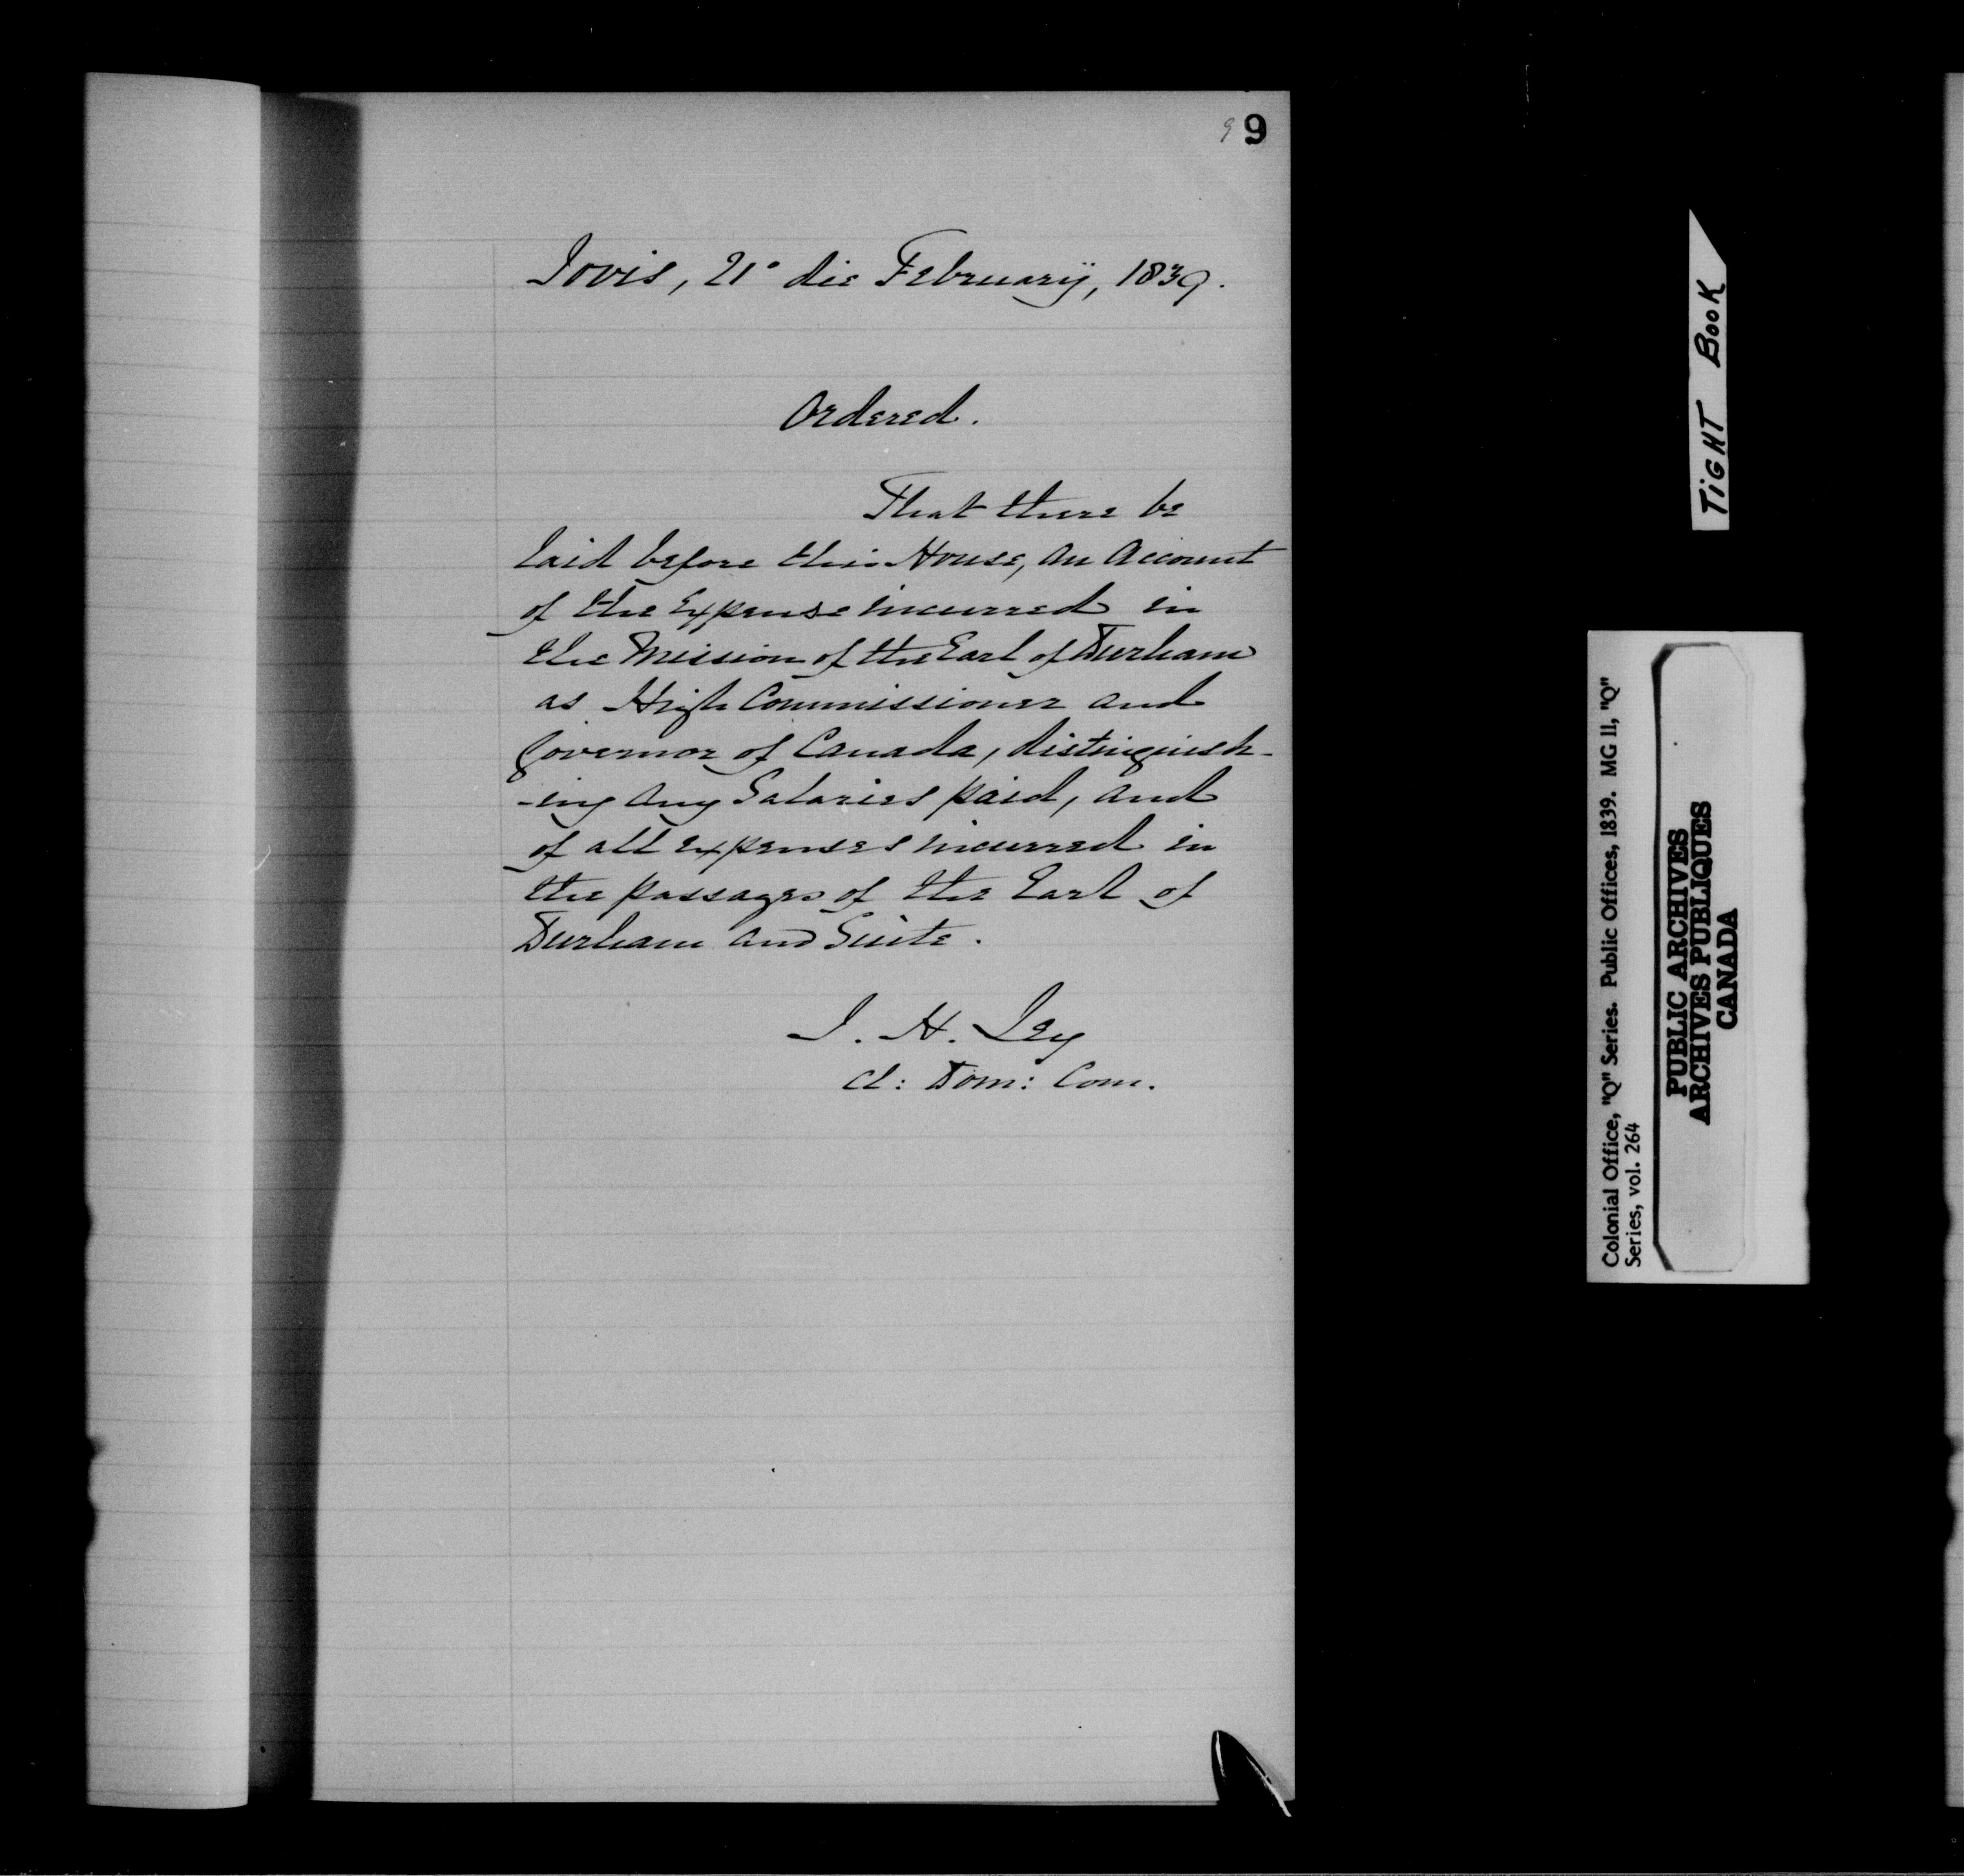 9 9
Jovis, 21° die Februarÿ, 1839.
Ordered.
That there be
laid before this House, an Account
of the Expense incurred in
the Mission of the Earl of Durham
as High Commissioner and
Governor of Canada, distinguish-
-ing any Salaries paid, and
of all expenses incurred in
the passages of the Earl of
Durham and Suite.
J. H. Ley
Cl: Dom: Com.
TIGHT BOOK
Colonial Office, "Q" Series. Public Offices, 1839. MG 11, "Q"
Series, vol. 264
PUBLIC ARCHIVES
ARCHIVES PUBLIQUES
CANADA